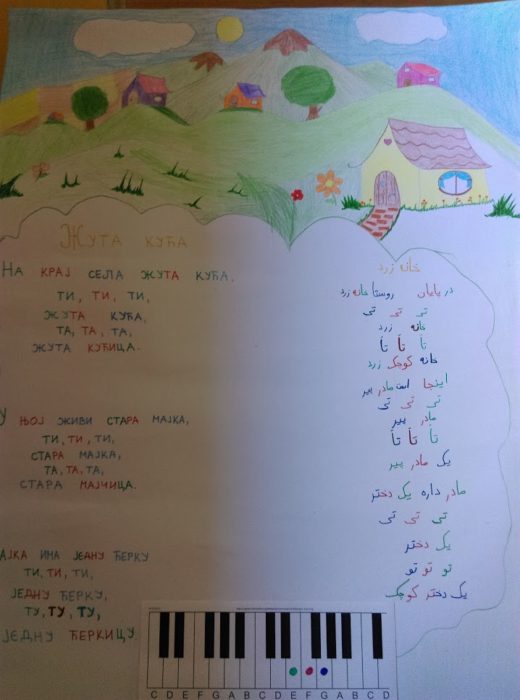 ЖУТА КУЋА
НА КРАЈ СЕЛА ЖУТА КУЋА.
ТИ, ТИ, ТИ,
ЖУТА КУЋА,
ТА, ТА, ТА,
ЖУТА КУЋИЦА.
У ЊОЈ ЖИВИ СТАРА МАЈКА,
ТИ, ТИ, ТИ,
СТАРА МАЈКА,
ТА, ТА, ТА,
СТАРА МАЈЧИЦА.
АЈКА ИМА ЈЕДНУ ЋЕРКУ
ТИ, ТИ, ТИ,
ЈЕДНУ ЋЕРКУ,
ТУ, ТУ, ТУ,
ЈЕДНУ ЋЕРКИЦУ
خانه زرد
در پایان روستا خانه زرد
تی تی تی
خانه زرد
تا تا تا
خانه کوچک زرد
اینجا است مادر پیر
تی تی تی
مادر پیر
تا تا تا
یک مادر پیر
مادر داره یک دختر
تی تی تی
یک دختر
تو تو تو
یک دختر کوچک
C D E F G A B C D E F G A B C D